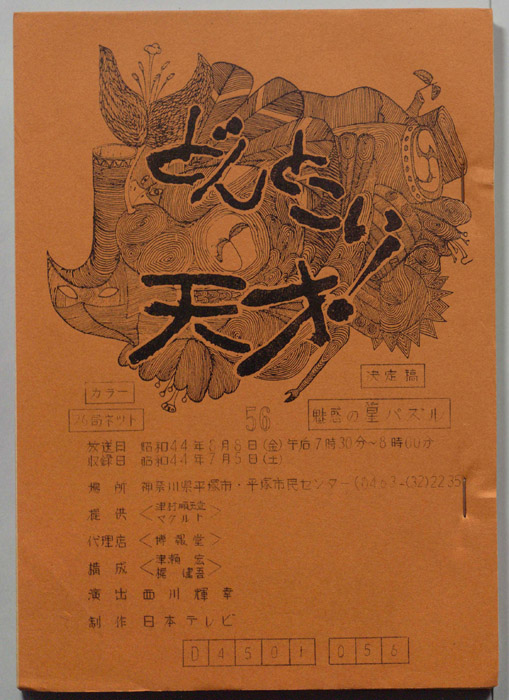 どんとこい
天才!
決定稿
カラー
ネット
56
魅惑の星パズル
放送日 昭和44年8月8日(金)午後7時30分~8時00分
収録日 昭和44年7月5日(土)
場所 神奈川県平塚市・平塚市民センター(0463-(32)2235
提供 <津村順天堂
マクルト
代理店 <博報堂>
構成 <津瀬 宏
梶 健吾>
演出 西川輝幸
制作 日本テレビ
D4501 056